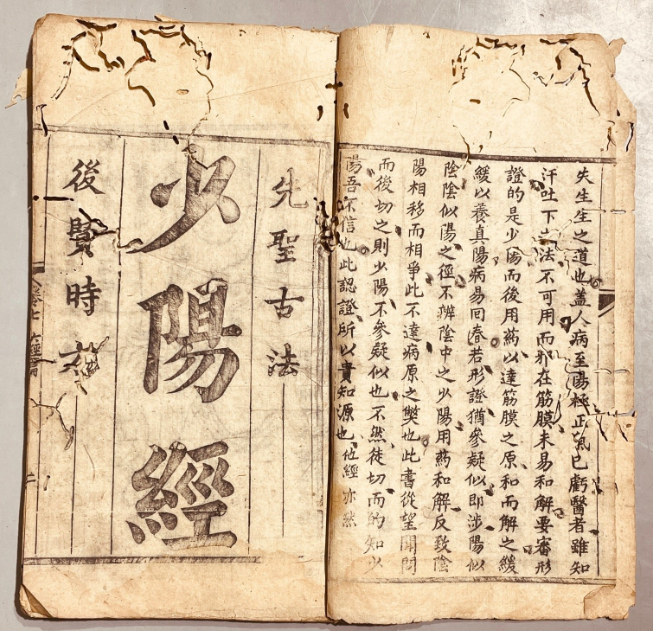 失生生之道也蓋人病至陽極正氣已虧醫者雖知
汗吐下三法不可用而邪在筋膜未易和解要審形
證的是少陽而後用藥以達筋膜之原和而解之緩
緩以養真陽病易回春若形證猶參疑似即涉陽似
陰陰似陽之徑不辨陰中之少陽用藥和解反致陰
陽相移而相爭此不達病原之獘也此書從望聞問
而後切之則少陽不參疑似也不然徒切而的知少
陽吾不信也此認證所以貴知源也他經亦然
先聖古法
少陽經
後賢時